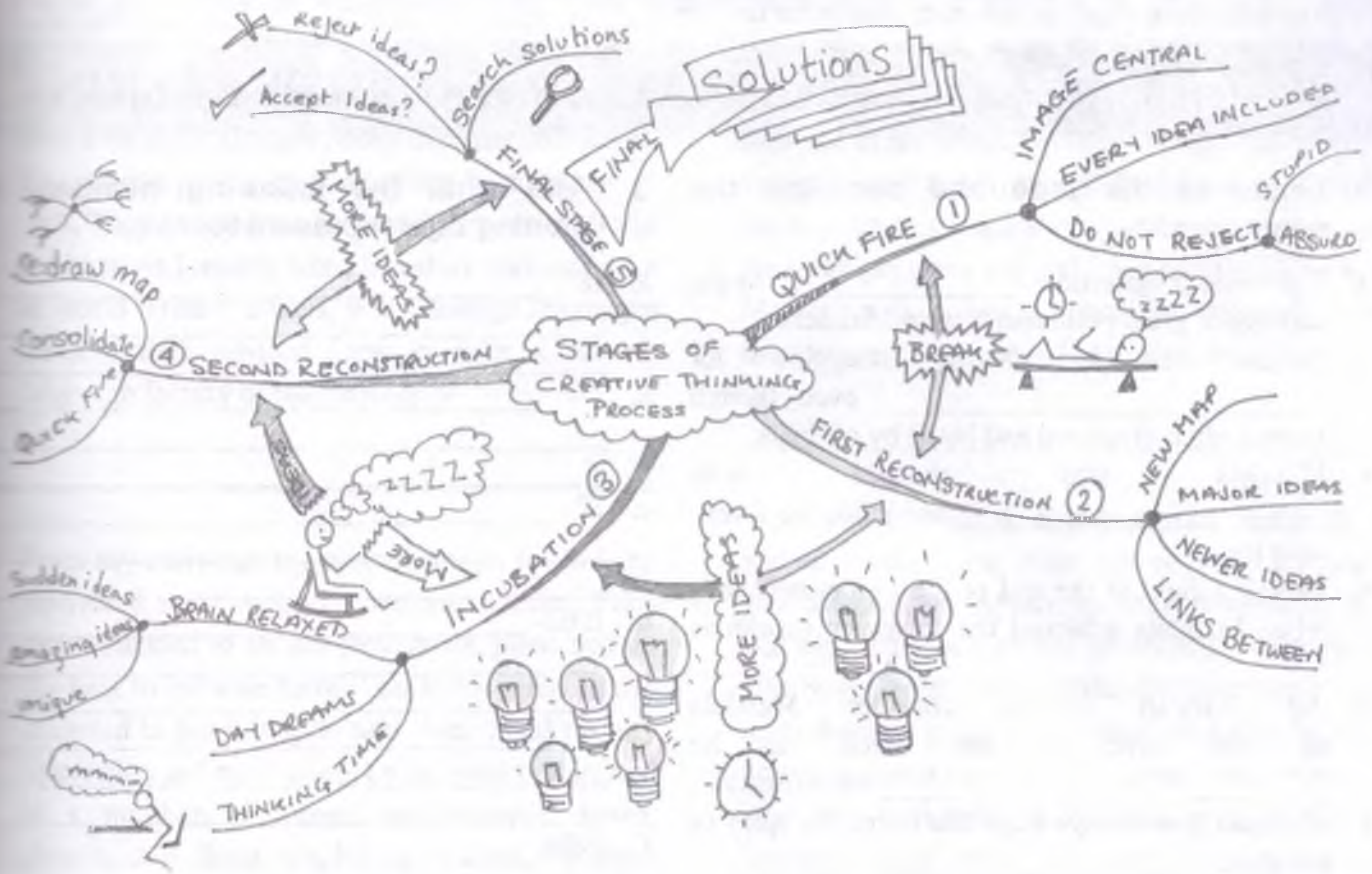 STAGES OF
CREATIVE THINKING
PROCESS
QUICK FIRE ①
IMAGE CENTRAL
EVERY IDEA INCLUDED
DO NOT REJECT
STUPID
ABSURD
BREAK
zzZZ
FIRST RECONSTRUCTION ②
NEW MAP
MAJOR IDEAS
NEWER IDEAS
LINKS BETWEEN
MORE IDEAS
INCUBATION ③
BRAIN RELAXED
Sudden ideas
amazing ideas
unique
DAY DREAMS
THINKING TIME
mmmm
ZZZZ
MORE
④ SECOND RECONSTRUCTION
Redraw map
Consolidate
Quick Fire
?
?
TOP IDEAS
FINAL STAGE ⑤
Reject ideas?
Accept Ideas?
Search solutions
FINAL
Solutions